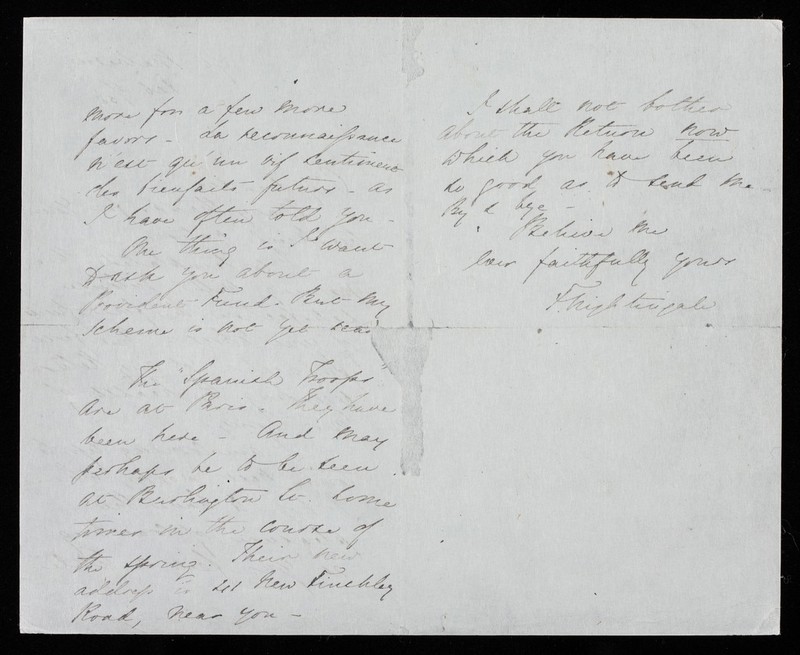 more for a few more
favors - La reconnaissance
n'est qu'un vif sentiment
des bienfaits futurs - as
I have often told you -
One thing is I want
to ask you about a
Provident Fund. But my
scheme is not yet
The "Spanish Troops"
are at Paris. They have
been here - And may
perhaps be to be seen
at Burlington St. some
times in the course of
the spring. Their new
address is 41 New Finchley
Road, near you -
I shall not bother
about the Return now
which you have been
so good as to send me
By & bye -
Believe me
ever faithfully yours
F. Nightingale